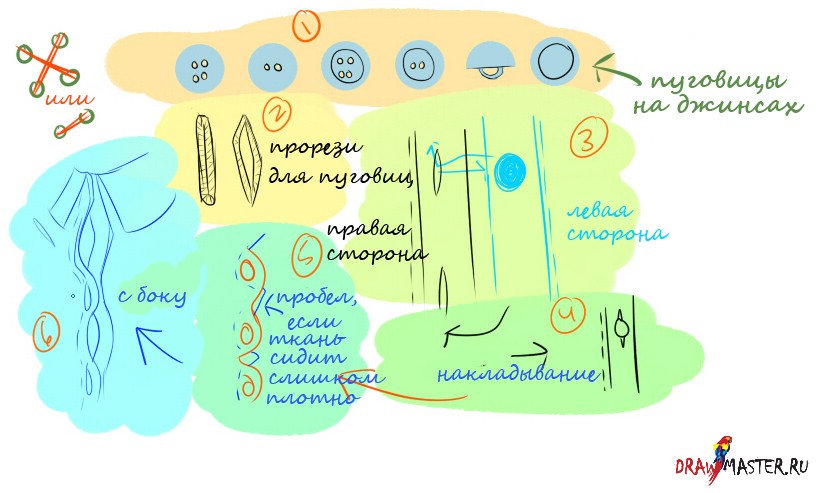 1
или
пуговицы
на джинсах
2
прорези
для пуговиц
3
левая
сторона
правая
сторона
5
пробел,
если
ткань
сидит
слишком
плотно
4
накладывание
6
с боку
DRAWMASTER.RU